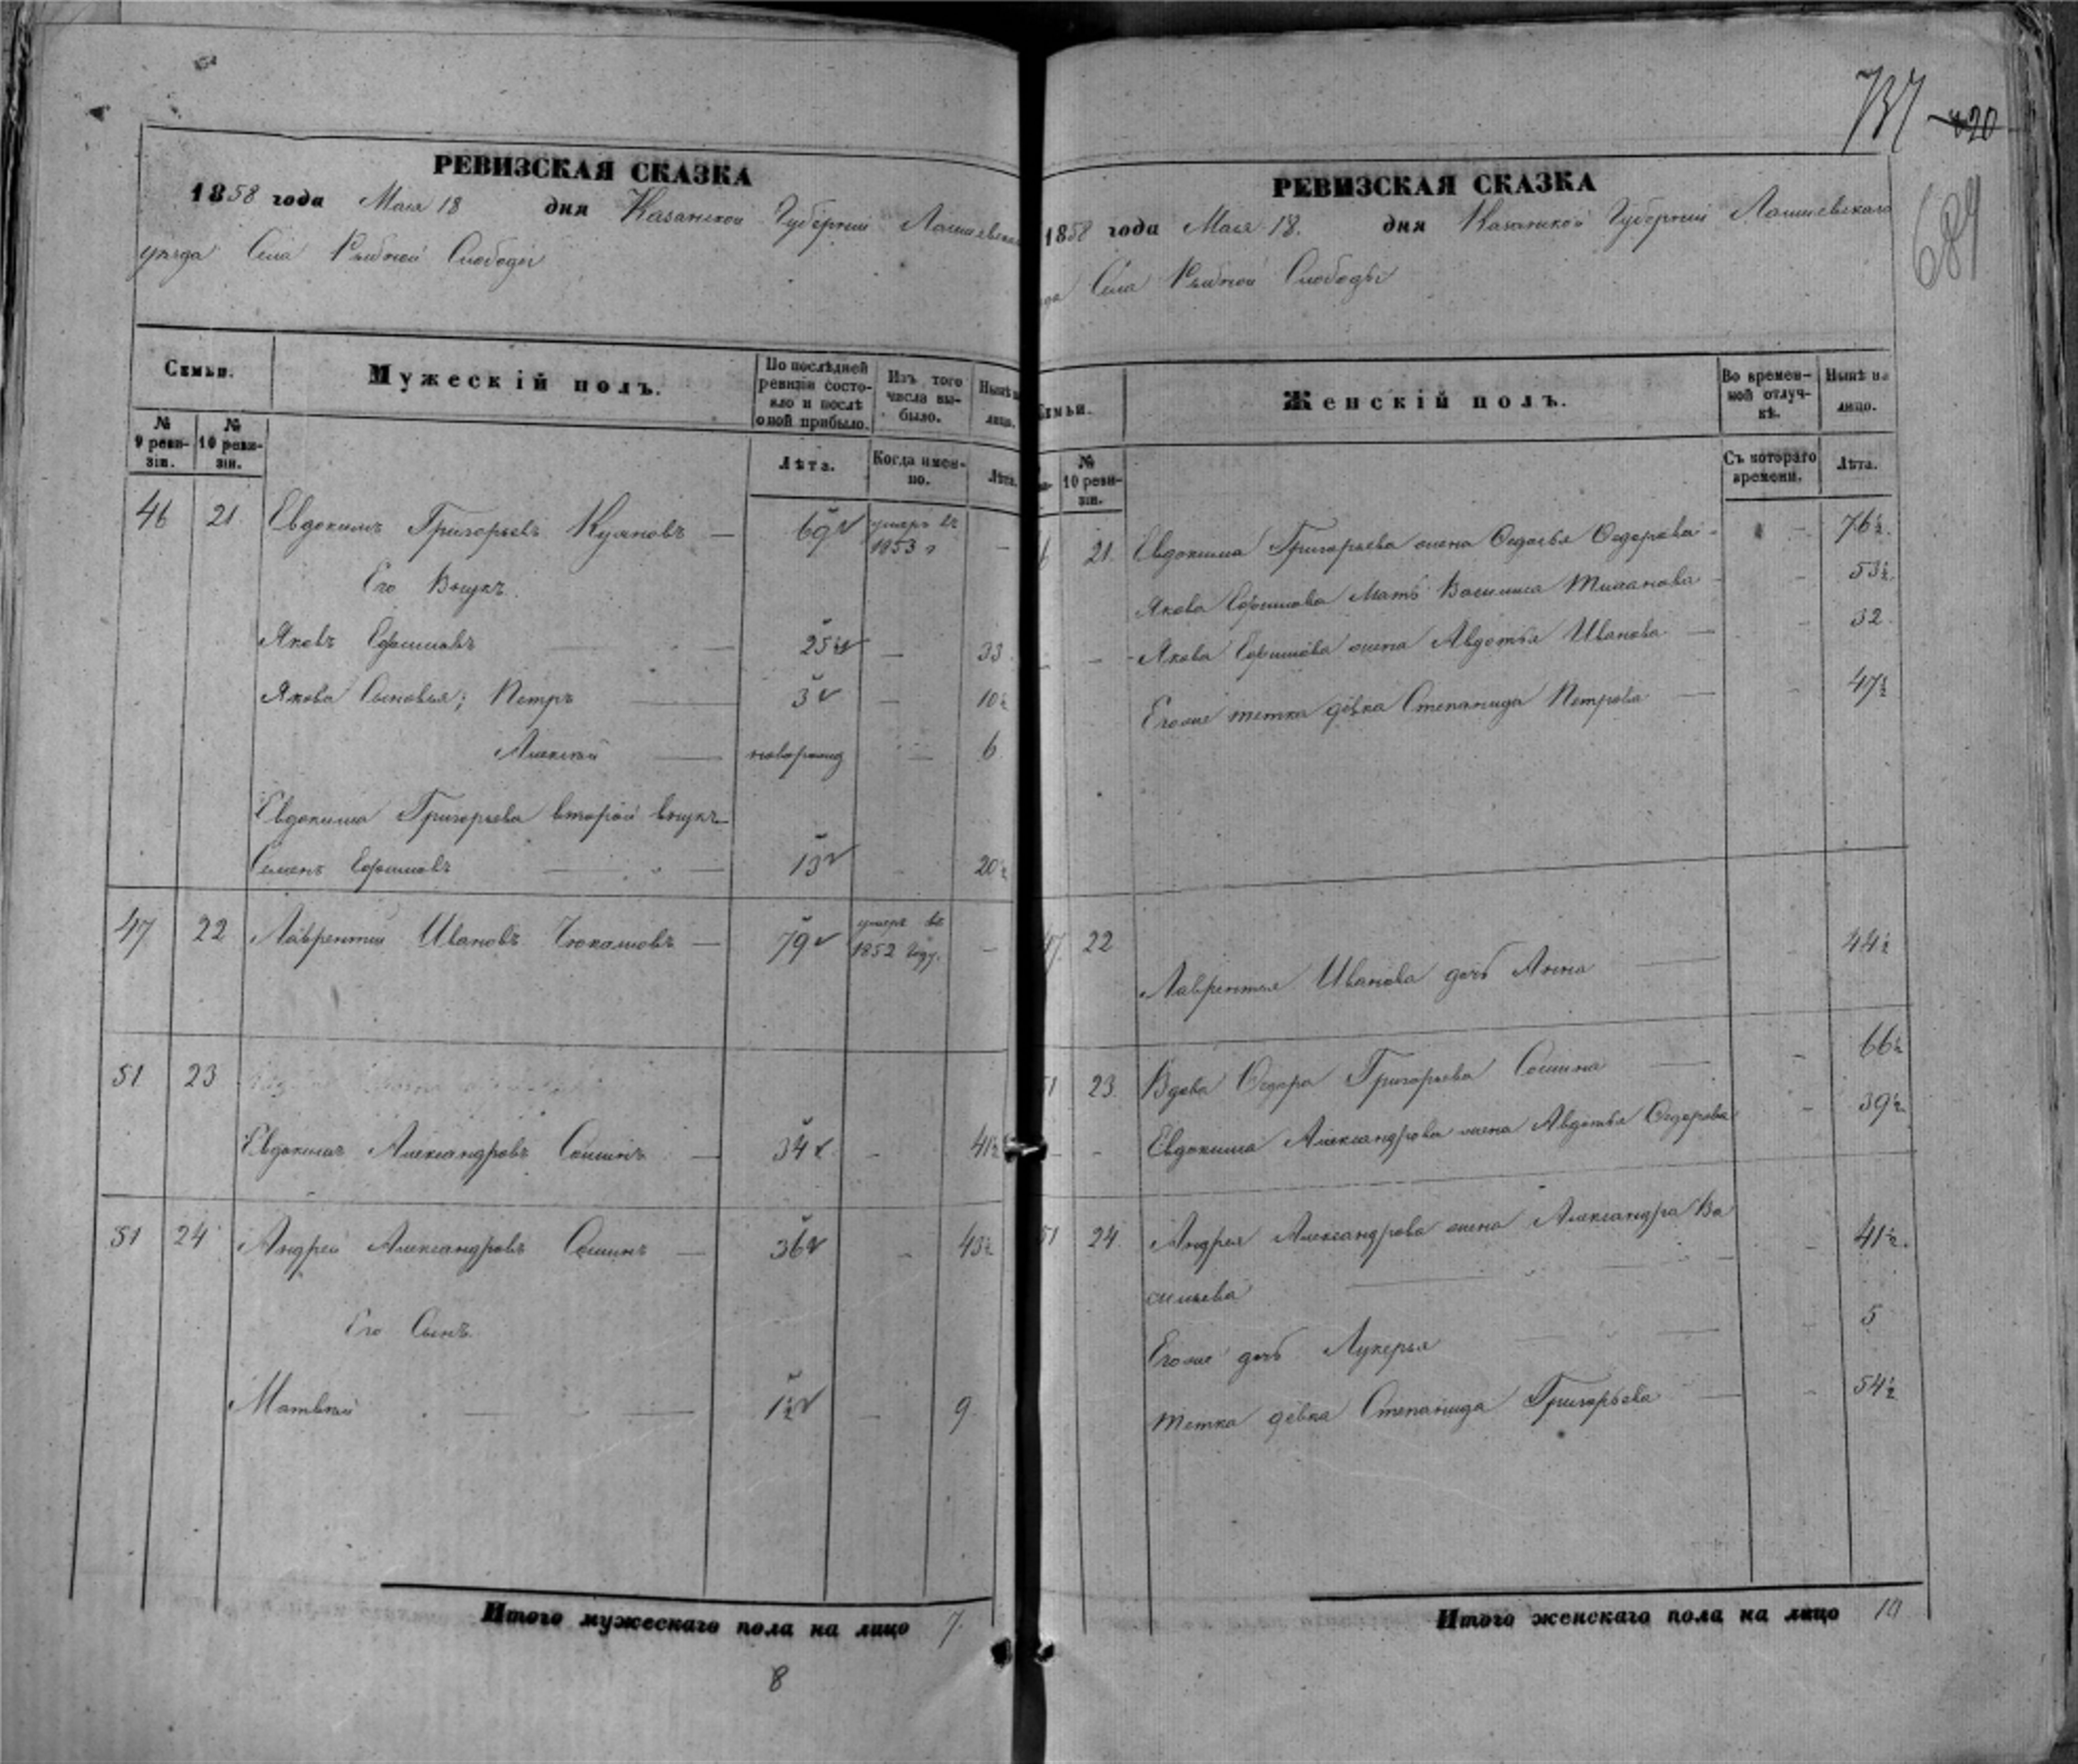 РЕВИЗСКАЯ СКАЗКА
1858 года Мая 18 дня Казанской Губернии Лаишевска
уезда Села Рыбной Слободы
Семьи.
Мужескій полъ.
По послѣдней ревизіи состояло и послѣ оной прибыло.
Изъ того числа выбыло.
Нынѣ н лицо.
№ 9 ревизіи.
№ 10 ревизіи.
Лѣта.
Когда именно.
Лѣта.
46 21. Евдокимъ Григорьевъ 69 умеръ въ 1853 г —
Его Внукъ.
Яковъ Ефимовъ 25½ — 33
Якова Сыновья; Петръ 3 — 10½
Алексѣй новорожд — 6
Евдокима Григорьева второй внукъ
Семенъ Ефимовъ 13 20½
47 22 Лаврентий Ивановъ 79 умеръ въ 1852 году. —
51 23
Евдокимъ Александровъ Сошинъ — 34 — 41½
51 24 Андрей Александровъ Сошинъ — 36 — 43½
Его Сынъ.
Матвѣй 1½ — 9.
Итого мужескаго пола на лицо 7.
8
737 420
684
РЕВИЗСКАЯ СКАЗКА
1858 года Мая 18. дня Казанской Губернии Лаишевскаго
да Села Рыбной Слободы
емьи.
Женскій полъ.
Во временной отлучкѣ.
Нынѣ на лицо.
№ 10 ревизіи.
Съ котораго времени.
Лѣта.
6 21. Евдокима Григорьева жена Федосья Федорова — 76½.
Якова Ефимова Мать Василиса — 53½
Якова Ефимова жена Авдотья Иванова — 32.
Егоже тетка дѣвка Степанида Петрова — 47½
47. 22 Лаврентия Иванова дочь Анна 44½
51 23. Вдова Федора Григорьева Сошина — 66½
Евдокима Александрова жена Авдотья Федорова — 39½
51 24. Андрея Александрова жена Александра Ва
сильева — 41½.
Егоже дочь Лукерья 5
тетка дѣвка Степанида Григорьева — 54½
Итого женскаго пола на лицо 10